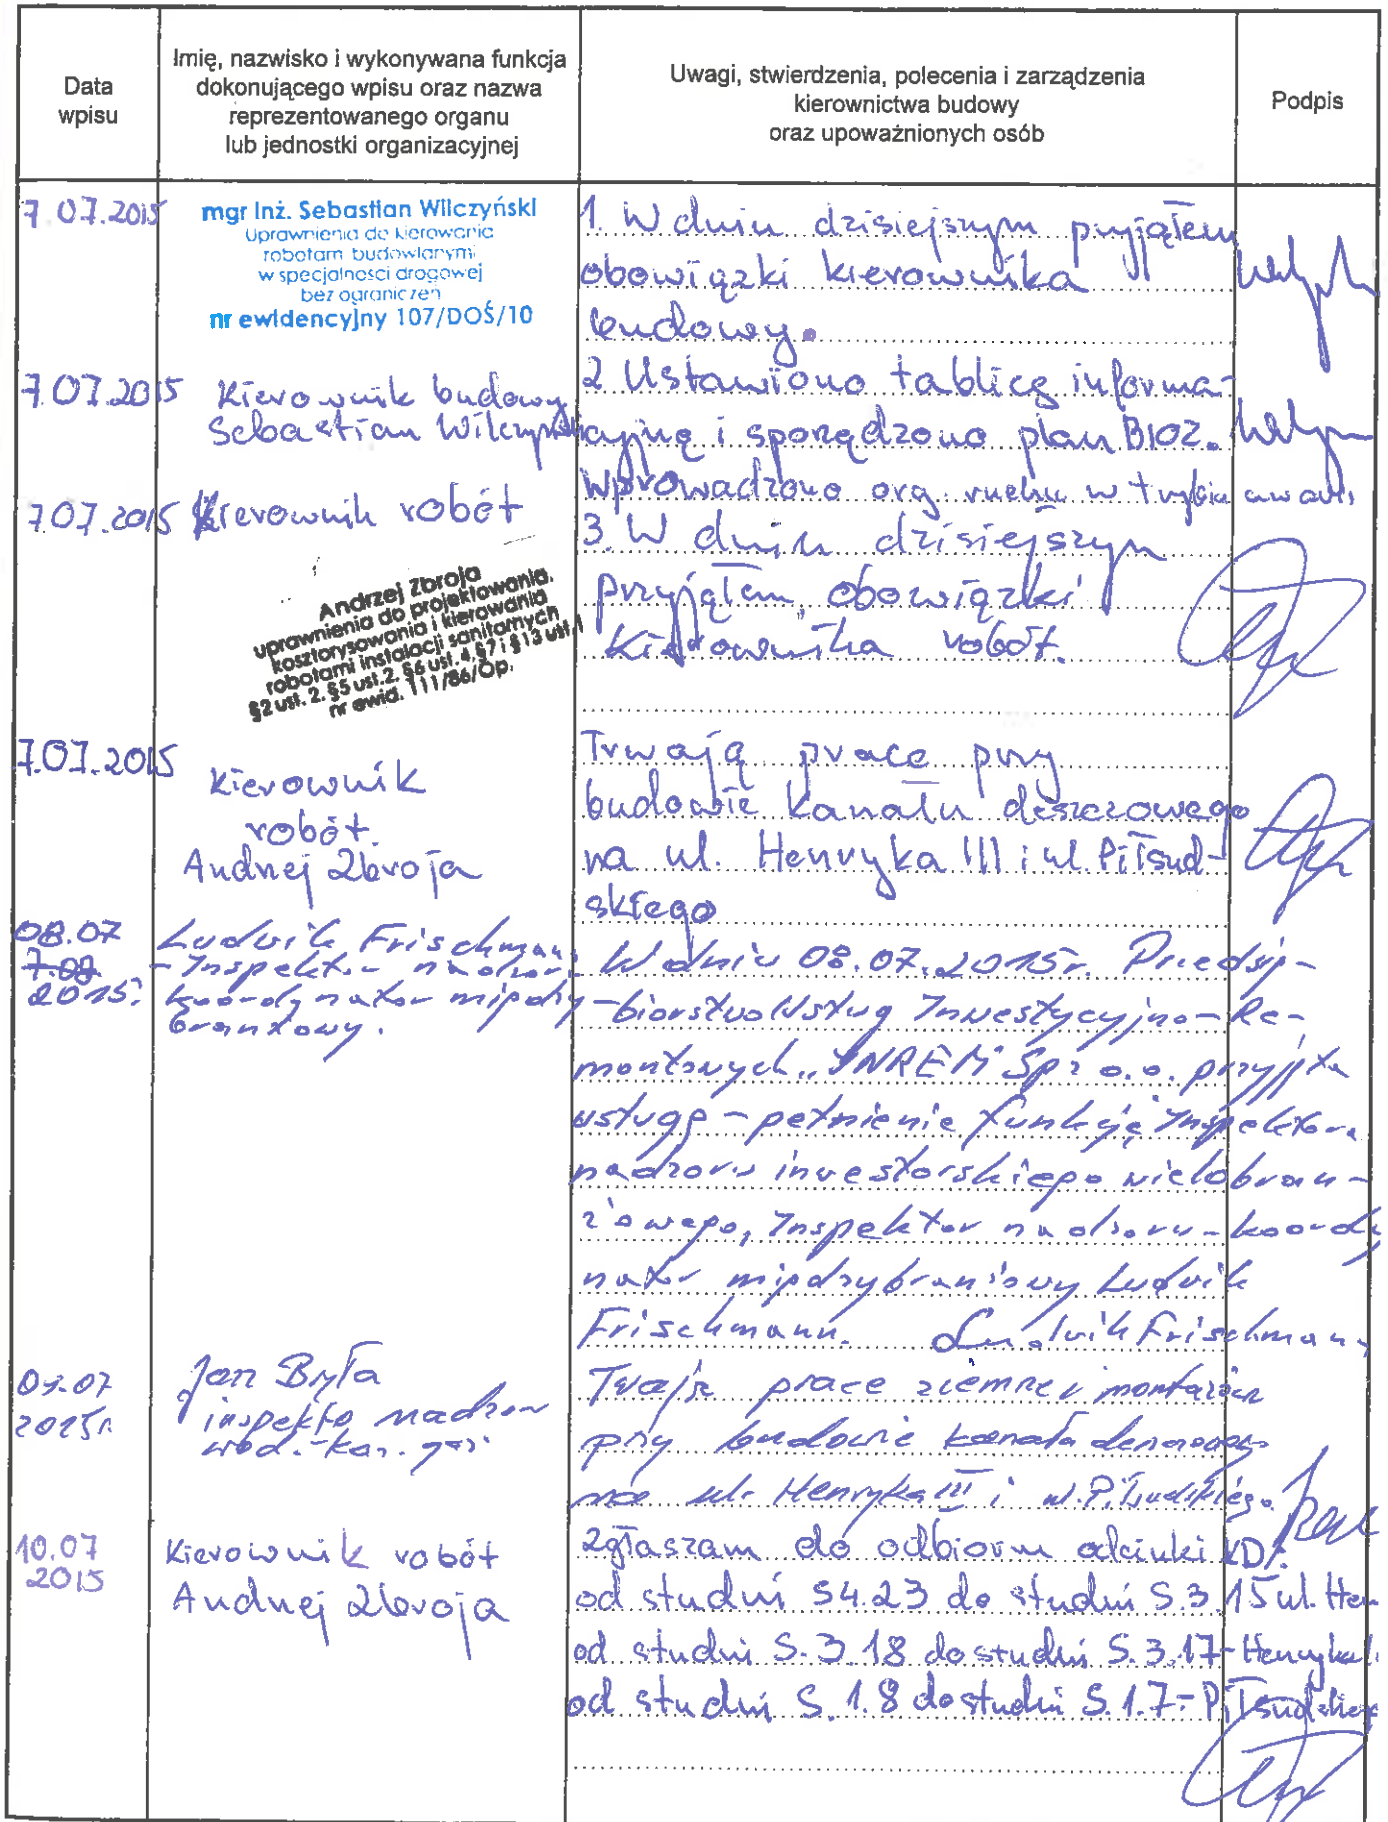 Data
wpisu
Imię, nazwisko i wykonywana funkcja
dokonującego wpisu oraz nazwa
reprezentowanego organu
lub jednostki organizacyjnej
Uwagi, stwierdzenia, polecenia i zarządzenia
kierownictwa budowy
oraz upoważnionych osób
Podpis
7.07.2015
mgr Inż. Sebastian Wilczyński
Uprawnienia do kierowania
robotami budowlanymi
w specjalności drogowej
bez ograniczeń
nr ewidencyjny 107/DOŚ/10
1. W dniu dzisiejszym przyjąłem
obowiązki kierownika
budowy.
7.07.2015
Kierownik budowy
Sebastian Wilczyński
2 Ustawiono tablicę informa-
cyjną i sporządzono plan BIOZ.
Wprowadzono org. ruchu w trybie awar.
7.07.2015
Kierownik robót
Andrzej Zbroja
uprawnienia do projektowania,
kosztorysowania i kierowania
robotami instalacji sanitarnych
§2 ust. 2. §5 ust.2. §6 ust.4.§7 i §13 ust.1
nr ewid. 111/86/Op.
3. W dniu dzisiejszym
przyjąłem obowiązki
Kierownika robót.
7.07.2015
Kierownik
robót.
Andrzej Zbroja
Trwają prace przy
budowie kanału deszczowego
na ul. Henryka III i ul. Piłsud-
skiego
08.07
7.08
2015r.
Ludwik Frischmann
- Inspektor nadzoru
koordynator między
branżowy.
W dniu 08.07.2015r. Przedsię-
-biorstwo Usług Inwestycyjno-Re-
montowych "INREM" Sp z o.o. przyjęło
usługę - pełnienie funkcję Inspektora
nadzoru inwestorskiego wielobran-
żowego, Inspektor nadzoru - koordy
nator międzybranżowy Ludwik
Frischmann. Ludwik Frischmann
09.07
2015r.
Jan Była
inspekto nadzoru
wod.-kan. gaz.
Trwają prace ziemne i montażowe
przy budowie kanału deszczowego
na ul. Henryka III i ul. Piłsudskiego.
10.07
2015
Kierownik robót
Andrzej Zbroja
Zgłaszam do odbioru odcinki KD.
od studni S4.23 do studni S.3.15 ul. Hen
od studni S.3.18 do studni S.3.17 - Henryka
od studni S.1.8 do studni S.1.7 - Piłsudskiego